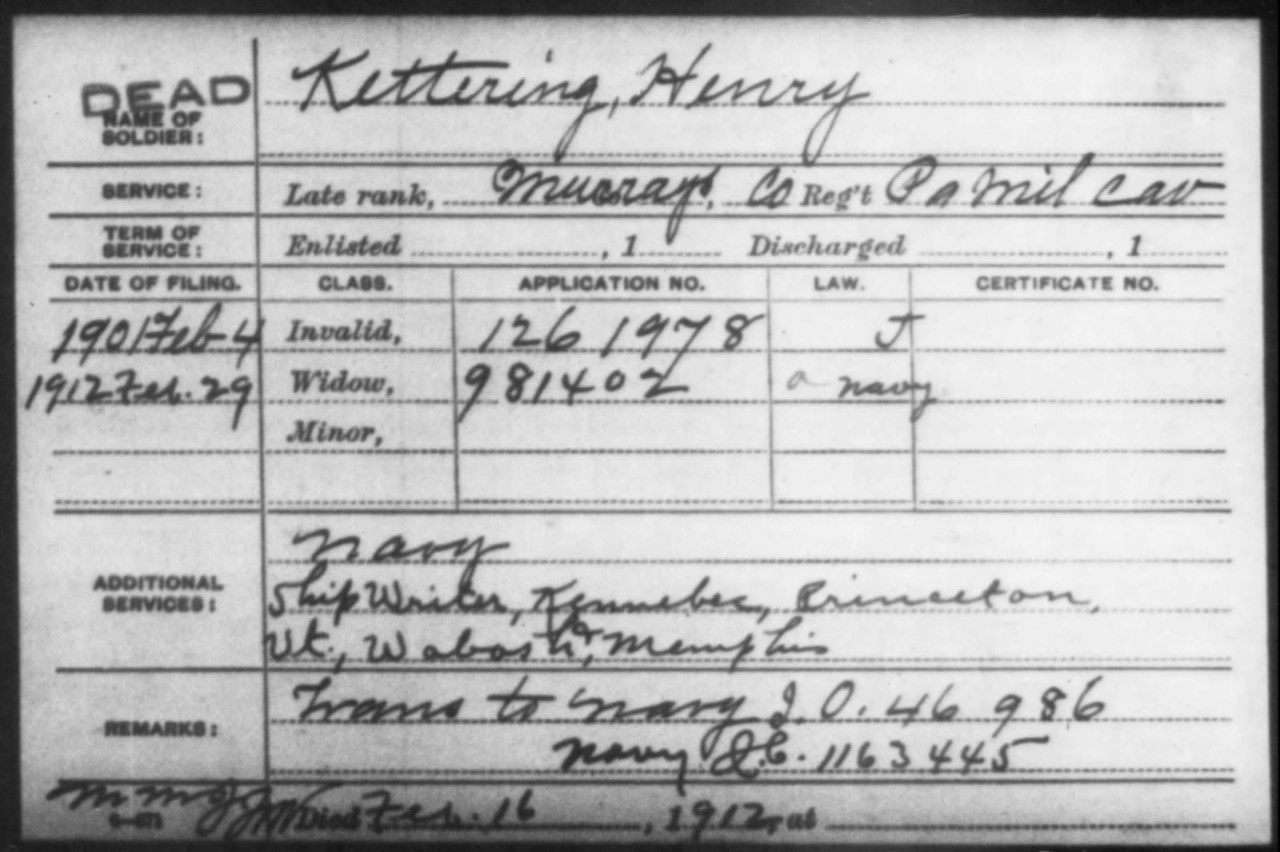 DEAD
NAME OF SOLDIER: Kettering, Henry
SERVICE: Late rank, Murrays, Co Reg't Pa Mil Cav
TERM OF SERVICE: Enlisted , 1 Discharged , 1
DATE OF FILING. CLASS. APPLICATION NO. LAW. CERTIFICATE NO.
1901 Feb 4 Invalid, 1261978 J
1912 Feb. 29 Widow, 981402 a navy
Minor,
Navy
ADDITIONAL SERVICES: Ship Writer, Kennebec, Princeton,
Vt., Wabash, Memphis
REMARKS: Trans to Navy I.O. 46 986
Navy I.C. 1163445
Died Feb. 16, 1912, at